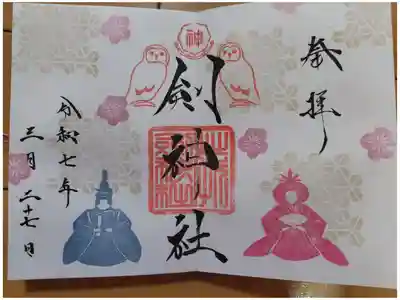 奉拝
神
剣神社
令和七年
三月二十七日